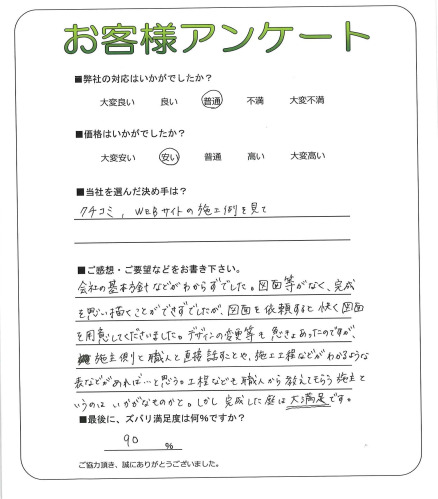 お客様アンケート
■弊社の対応はいかがでしたか？
大変良い　良い　普通　不満　大変不満
■価格はいかがでしたか？
大変安い　安い　普通　高い　大変高い
■当社を選んだ決め手は？
クチコミ，WEBサイトの施工例を見て
■ご感想・ご要望などをお書き下さい。
会社の基本方針などがわからずでした。図面等がなく、完成
を思い描くことができずでしたが、図面を依頼すると快く図面
を用意してくださいました。デザインの変更等も急きょあったのですが、
施主側と職人と直接話すことや、施工工程などがわかるような
表などがあれば…と思う。工程なども職人から教えてもらう施主と
いうのはいかがなものかと。しかし完成した庭は大満足です。
■最後に、ズバリ満足度は何%ですか？
90 %
ご協力頂き、誠にありがとうございました。